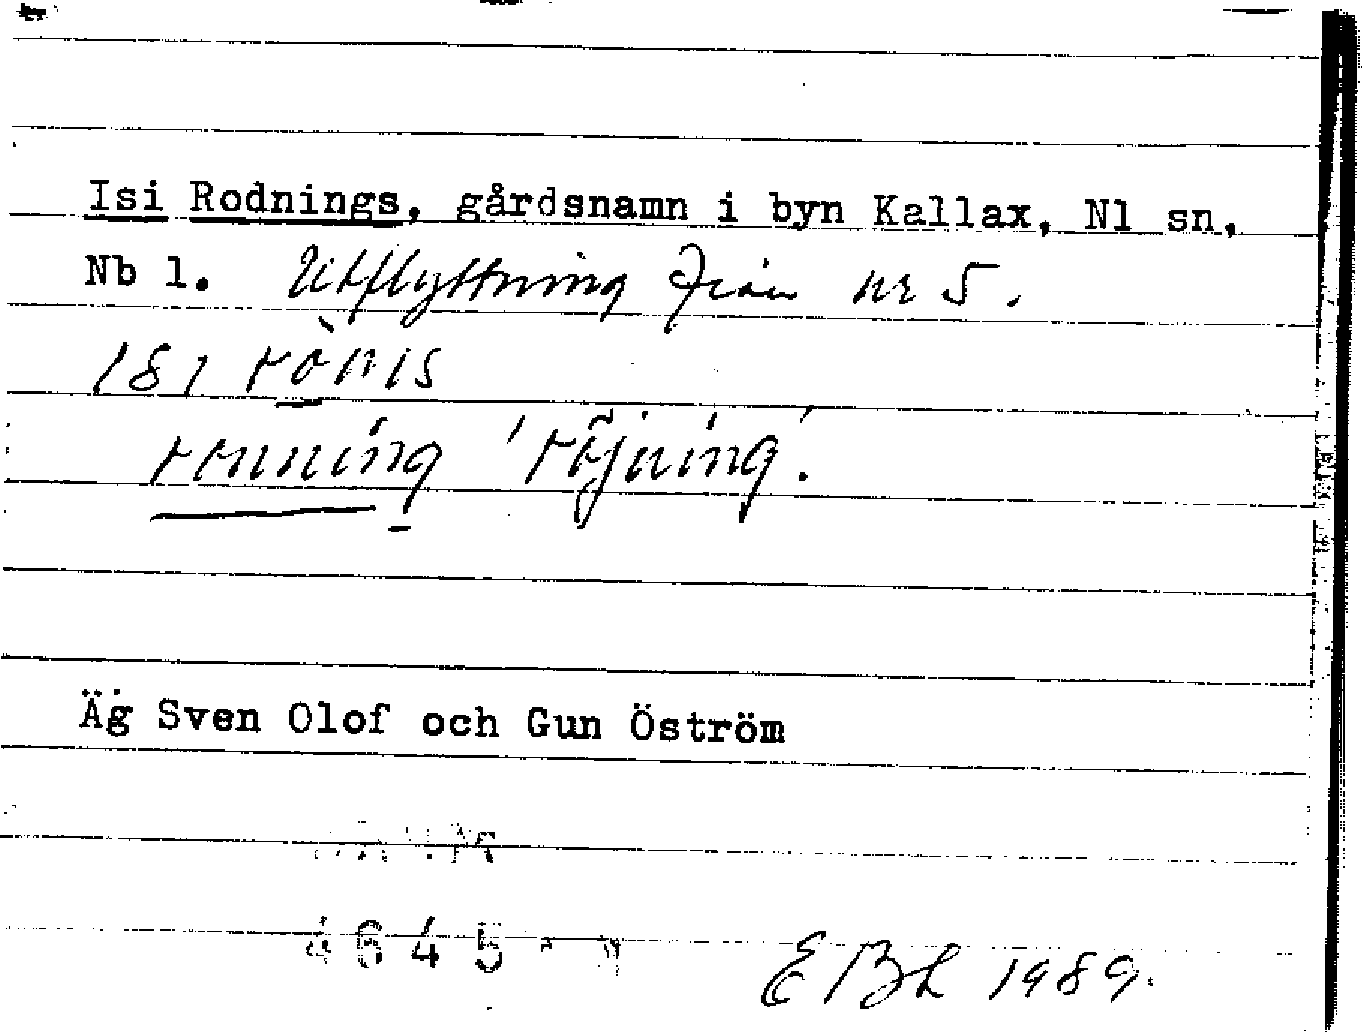 Isi Rodnings, gårdsnamn i byn Kallax, Nl sn,
Nb l. Utflyttning från nr 5.
isi rònis
ronning 'röjning'.
Äg Sven Olof och Gun Öström
EBL 1989.